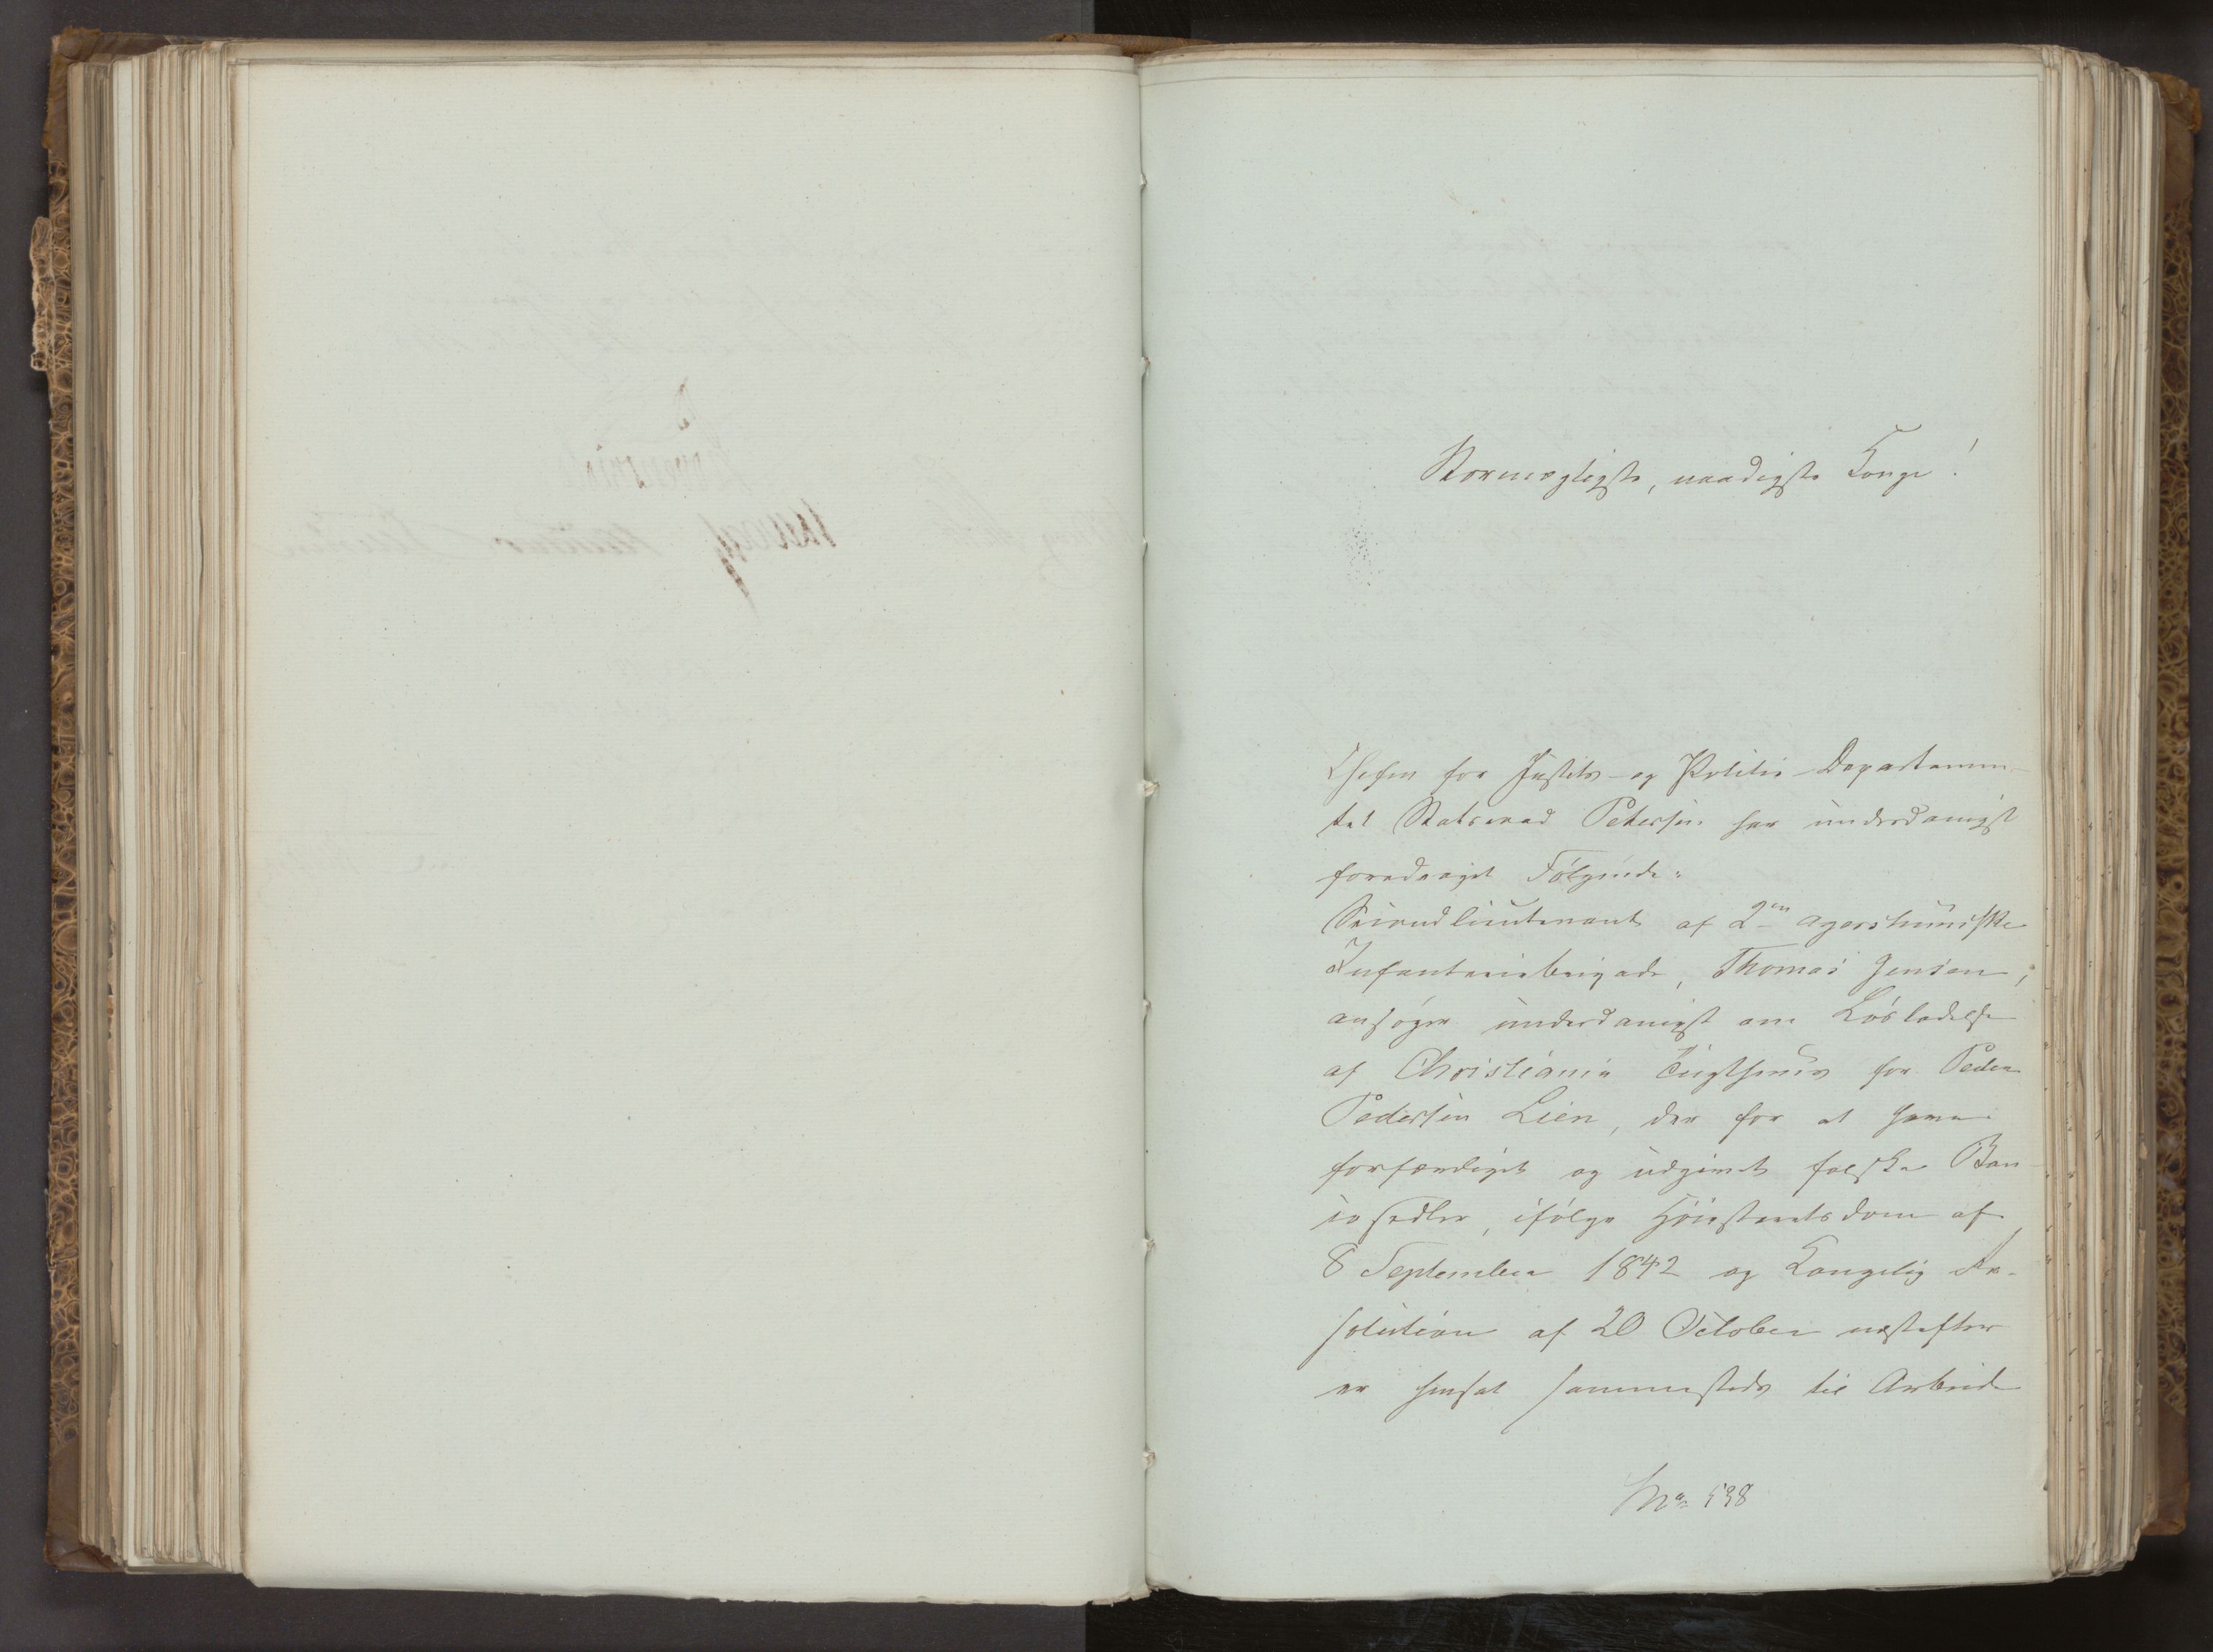 Stormægtigste, naadigste Konge!
Chefen for Justits- og Politie-Departemen-
tet Statsraad Petersen har underdanigst
foredraget Følgende:
Secondlieutenant af 2den Agershuusiske
Infanteriebrigade, Thomas Jensen,
ansøger underdanigst om Løsladelse
af Christiania Tugthuus for Peder
Pedersen Lien, der for at have
forfærdiget og udgivet falske Ban-
cosedler, ifølge Høiesteretsdom af
8 September 1842 og Kongelig Re-
solution af 20 October næstefter
er hensat sammesteds til Arbeide
No 538